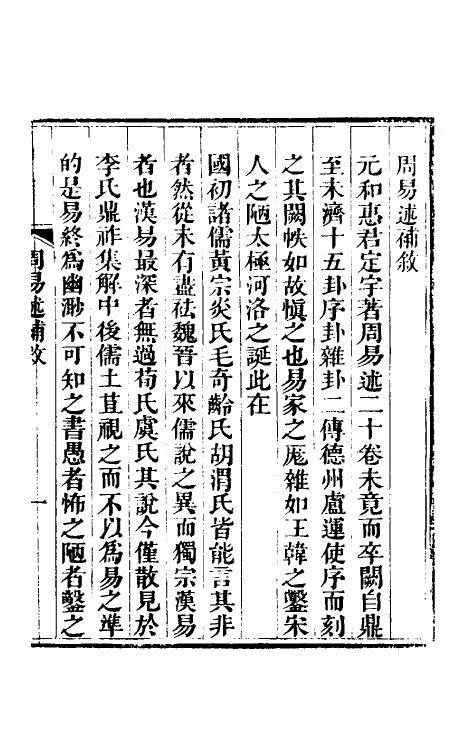 周易述補敘
元和惠君定宇著周易述二十卷未竟而卒闕自鼎
至未濟十五卦序卦雜卦二傳德州盧運使序而刻
之其闕帙如故愼之也易家之厖雜如王韓之鑿宋
人之陋太極河洛之誕此在
國初諸儒黃宗炎氏毛奇齡氏胡渭氏皆能言其非
者然從未有盡祛魏晉以來儒說之異而獨宗漢易
者也漢易最深者無過荀氏虞氏其說今僅散見於
李氏鼎祚集解中後儒土苴視之而不以爲易之準
的是易終爲幽渺不可知之書愚者怖之陋者鑿之
周易述補敘
一